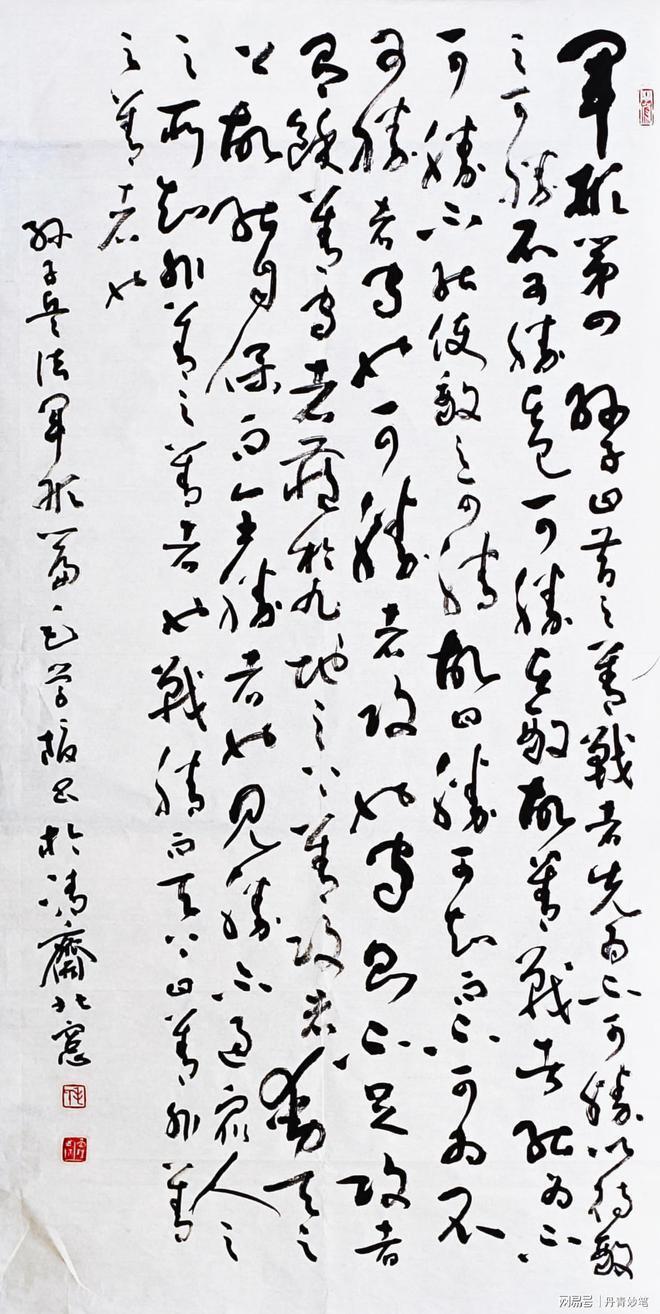 軍形第四 孫子曰昔之善戰者先為不可勝以待敵
之可勝不可勝在己可勝在敵故善戰者能為不
可勝不能使敵之可勝故曰勝可知而不可為不
可勝者守也可勝者攻也守則不足攻者
有餘善守者藏於九地之下善攻者動天之
上故能自保而全勝者也見勝不過眾人之
之所知非善之善者也戰勝而天下曰善非善
之善者也
孫子兵法軍形篇 書於 齋北窗
网易号 | 丹青妙笔